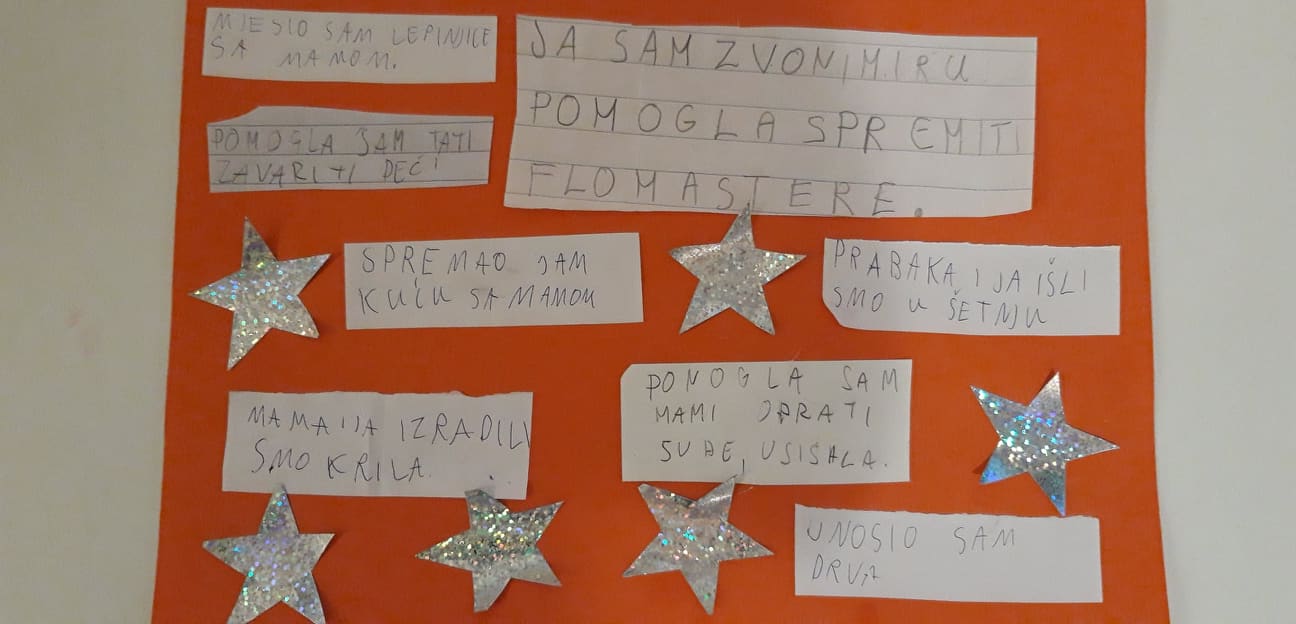 MJESIO SAM LEPINJICE
SA MAMOM.
JA SAM ZVONIMIRU
POMOGLA SPREMITI
FLOMASTERE.
POMOGLA SAM TATI
ZAVARITI PEĆ!
SPREMAO SAM
KUĆU SA MAMOM
PRABAKA I JA IŠLI
SMO U ŠETNJU
MAMA I JA IZRADILI
SMO KRILA.
POMOGLA SAM
MAMI OPRATI
SUĐE, USISALA.
UNOSIO SAM
DRVA